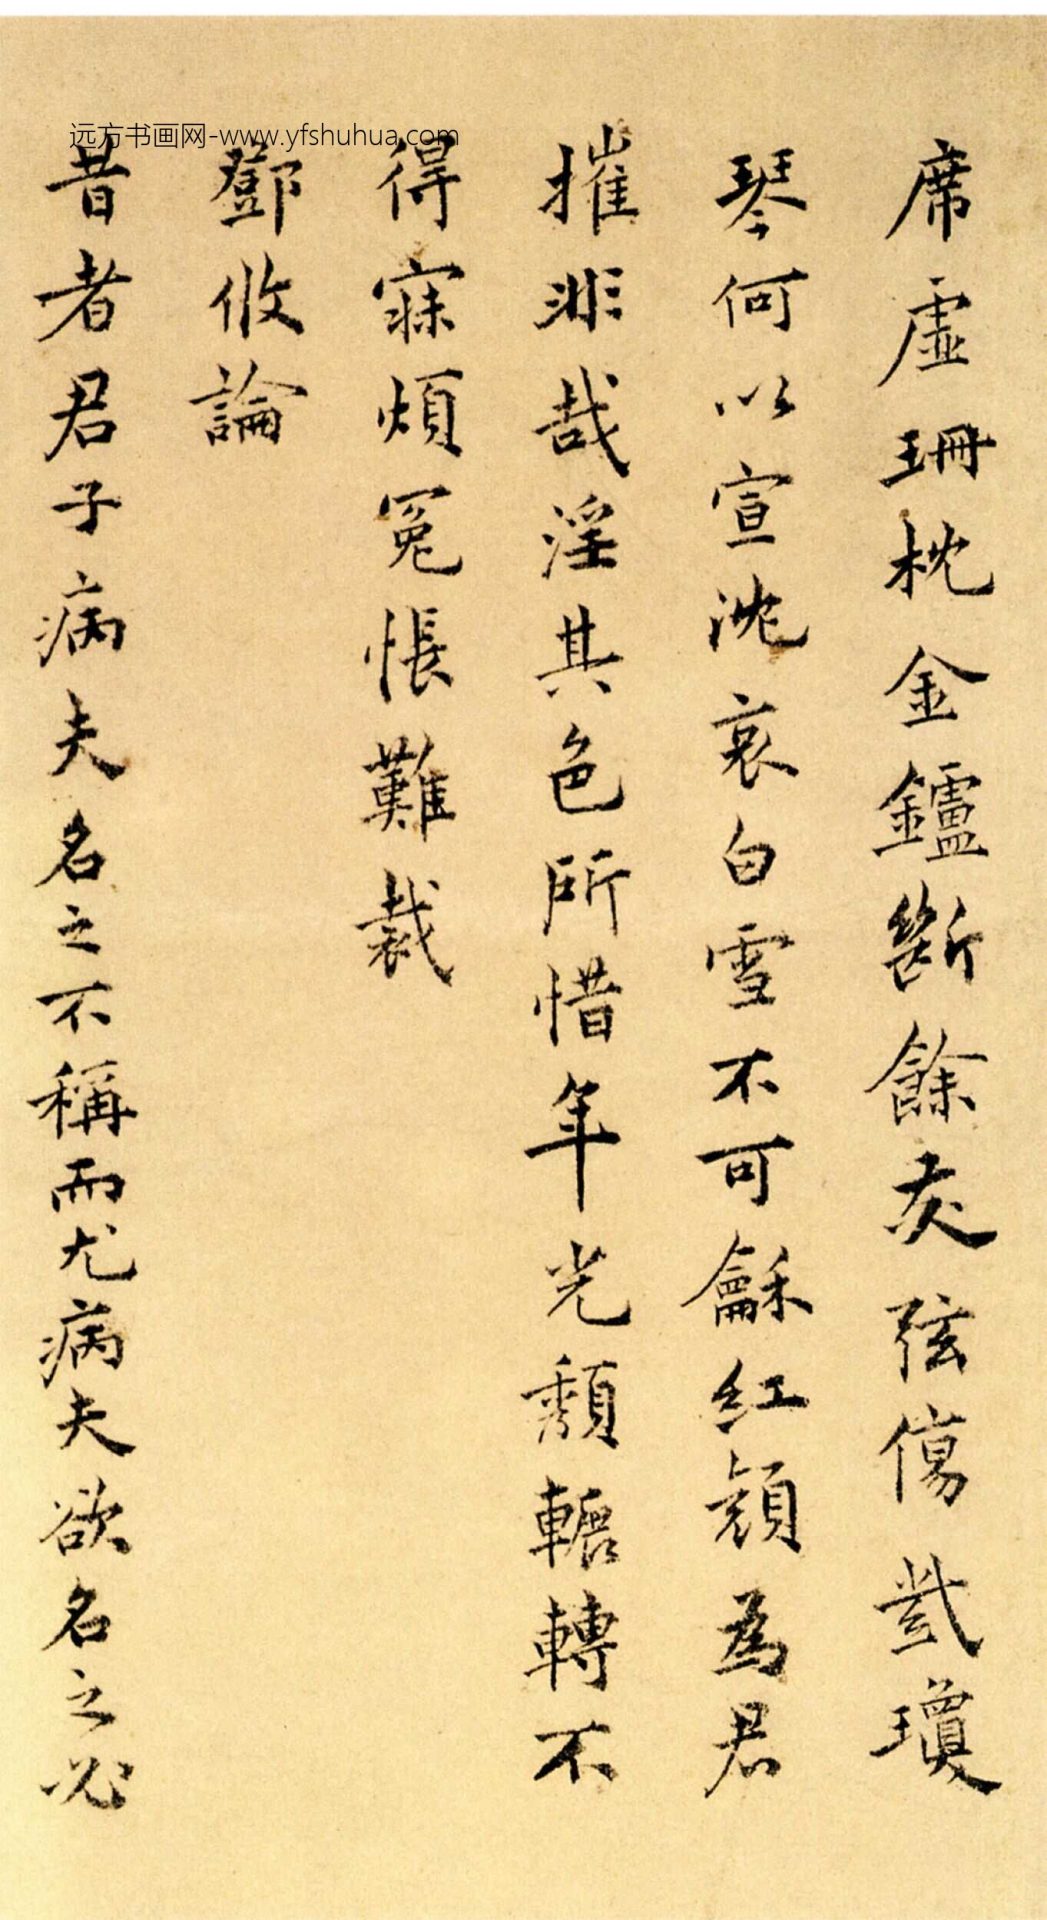 远方书画网-www.yfshuhua.com
席虛珊枕金鑪斷餘灰弦傷瓊
琴何以宣沈哀白雪不可龢紅顏為君
摧非哉淫其色所惜年光頹輾轉不
得寐煩冤悵難裁
鄧攸論
昔者君子病夫名之不稱而尤病夫欲名之必